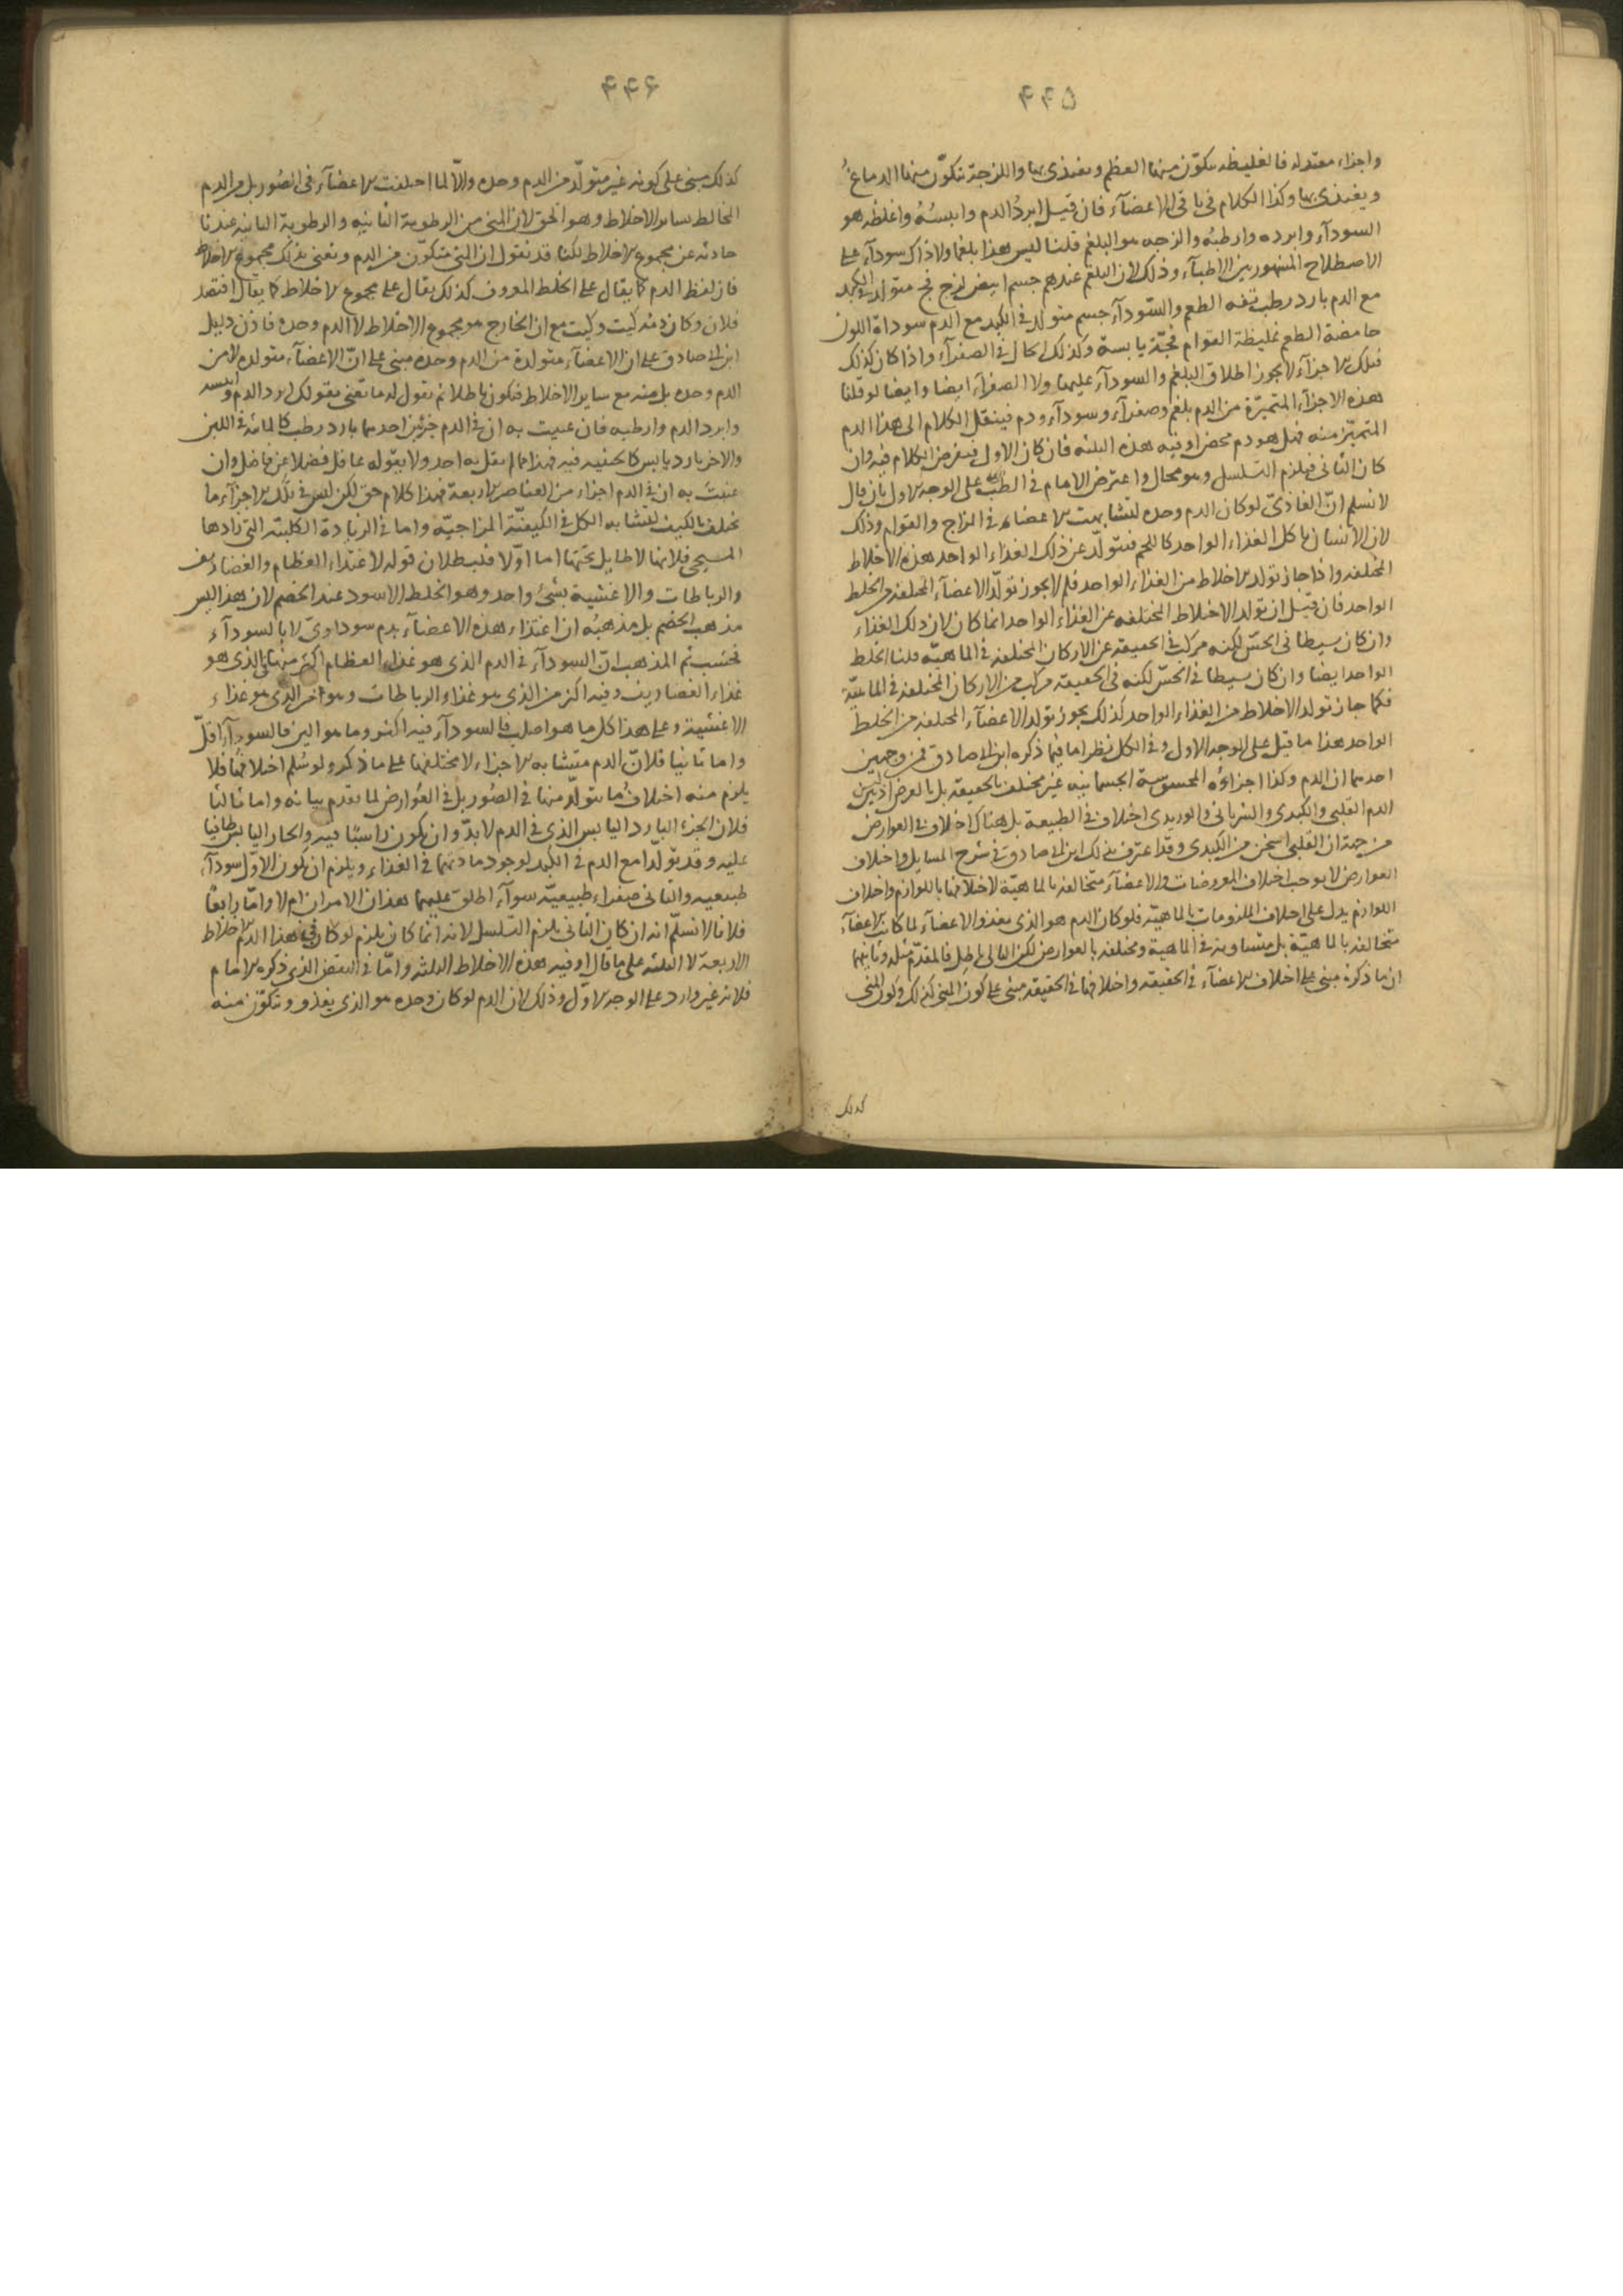 ۴۴۵
واجزاء معتدله فالغليظه يتكوّن منها العظم ويغتذى بها واللزجة تتكوّن منها الدماغ
ويغتذى بها وكذا الكلام فى باقى الاعضآء فان قيل ابردُ الدم وايبسُهُ واغلظه هو
السودآء وابرده وارطبُه والزجه هو البلغم قلنا ليس هذا بلغما ولا ذاك سودآء على
الاصطلاح المشهور بين الاطبآء وذلك لان البلغم عندهم جسم ابيض لزج فج متولد فى الكبد
مع الدم بارد رطب تفه الطعم والسّودآء جسم متولد فى الكبد مع الدم سوداة اللون
حامضة الطعم غليظة القوام فجّة يابسة وكذلك الحال فى الصفرآء واذا كان كذلك
فتلك الاجزآء لا يجوز اطلاق البلغم والسودآء عليهما ولا الصفرآء ايضا وايضا لو قلنا
هذه الاجزآء المتميزة من الدم بلغم وصفرآء وسودآء ودم فينقل الكلام الى هذا الدم
المتميّز منه فهل هو دم محض او فيه هذه الثلثه فان كان الاول فيفرض الكلام فيه وان
كان الثانى فيلزم التسلسل وهو محال واعترض الامام فى الطب على الوجه الاول بان قال
لا نسلم انّ الغاذىّ لو كان الدم وحده لتشابهت الاعضاء فى المزاج والقوام وذلك
لان الانسان ياكل الغذاء الواحد كاللحم فيتولّد عن ذلك الغذاء الواحد هذه الاخلاط
المختلفه واذا جاز تولد الاخلاط من الغذاء الواحد فلم لا يجوز تولّد الاعضآء المختلفه من الخلط
الواحد فان قيل ان تولد الاخلاط المختلفه عن الغذاء الواحد انما كان لان ذلك الغذاء
وان كان بسيطا فى الحسّ لكنه مركب فى الحقيقة عن الاركان المختلفه فى الماهيّه قلنا الخلط
الواحد ايضا وان كان بسيطا فى الحسّ لكنه فى الحقيقه مركب من الاركان المختلفه فى الماهيّة
فكما جاز تولد الاخلاط من الغذاء الواحد كذلك يجوز تولد الاعضآء المختلفه من الخلط
الواحد هذا ما قيل على الوجه الاول وفى الكل نظر اما فيما ذكره ابن ابى صادق فمن وجهين
احدهما ان الدم وكذا اجزاؤه المحسوسة الجسمانيه غير مختلف بالحقيقه بل بالعرض اذ ليس
الدم القلبى والكبدى والشريانى والوريدى اختلاف فى الطبيعة بل هناك اختلاف فى العوارض
من جهة ان القلبى اسخن من الكبدى وقد اعترف بذلك ابن ابى صادق فى شرح المسايل واختلاف
العوارض لا يوجب اختلاف المعروضات والاعضآء متخالفه بالماهيّة لاختلافها باللوازم واختلاف
اللوازم يدل على اختلاف الملزومات بالماهيّه فلو كان الدم هو الذى يغذو الاعضآء لما كانت الاعضآء
متخالفه بالماهيّة بل متساوية فى الماهية ومختلفه بالعوارض لكن التالى باطل فالمقدّم مثله وثانيهما
ان ما ذكره مبنى على اختلاف الاعضآء فى الحقيقه واختلافها فى الحقيقه مبنى على كون المنى كذلك وكون المنى
كذلك
۴۴۶
كذلك مبنى على كونه غير متولّد من الدم وحده والّا لما اختلفت الاعضآء فى الصُور بل من الدم
المخالط لساير الاخلاط وهو الحق لان المنى من الرطوبة الثانيه والرطوبة الثانيه عندنا
حادثه عن مجموع الاخلاط لكنا قد نقول ان المنى متكوّن من الدم ونعنى بذلك مجموع الاخلاط
فان لفظ الدم كما يقال على الخلط المعروف كذلك يقال على مجموع الاخلاط كما يقال افتصد
فلان وكان دمه كيت وكيت مع ان الخارج هو مجموع الاخلاط لا الدم وحده فاذن دليل
ابن ابى صادق على ان الاعضآء متولدة من الدم وحده مبنى على انّ الاعضآء متولده لا من
الدم وحده بل منه مع ساير الاخلاط فيكون باطلا ثم نقول له ما تعنى بقولك ابرد الدم وايبسه
وابرد الدم وارطبه فان عنيت به ان فى الدم جزئين احدهما بارد رطب كالمائه فى اللبن
والاخر بارد يابس كالجبنيه فيه فهذا مما لم يقل به احد ولا يقوله عاقل فضلا عن فاضل وان
عنيت به ان فى الدم اجزاء من العناصر الاربعة فهذا كلام حق لكن ليس فى تلك الاجزآء ما
يختلف بالكيف لتشابه الكل فى الكيفيّة المزاجيّة واما فى الزيادة الكلية التى زادها
المسيحى فلانها لا طايل تحتها اما اوّلا فلبطلان قوله لاغتذاء العظام والغضاريف
والرباطات والاغشية بشئ واحد وهو الخلط الاسود عند الخصم لان هذا ليس
مذهب الخصم بل مذهبُه ان اغتذاء هذه الاعضآء بدم سوداوىّ لا بالسودآء
فحسب ثم المذهب انّ السودآء فى الدم الذى هو غذاء العظام اكثر منها فى الذى هو
غذاء الغضاريف وفيه اكثر من الذى هو غذاء الرباطات وهو اخر الذى هو غذاء
الاغشية وعلى هذا كل ما هو اصلب فالسودآء فيه اكثر وما هو الين فالسودآء اقلّ
واما ثانيا فلانّ الدم متشابه الاجزاء لا مختلفها على ما ذكر ولو سُلم اختلافها فلا
يلزم منه اختلافُ ما يتولّد منها فى الصُور بل فى العوارض لما تقدم بيانه واما ثالثا
فلان الجزء البارد اليابس الذى فى الدم لا بدّ وان يكون راسبًا فيه والحار اليابس طافيا
عليه وقد تولّدا مع الدم فى الكبد لوجود مادتهما فى الغذاء ويلزم ان يكون الاوّل سودآء
طبيعيه والثانى صفراء طبيعيّه سوآء اطلق عليهما هذان الامران ام لا وامّا رابعًا
فلانا لا نسلّم انه ان كان الثانى يلزم التسلسل لانه انما كان يلزم لو كان فى هذا الدم الاخلاط
الاربعة لا الثلثه على ما قال او فيه هذه الاخلاط الثلثه وامّا فى النقض الذى ذكره الامام
فلانه غير وارد على الوجه الاوّل وذلك لان الدم لو كان وحده هو الذى يغذو ويتكوّن منه